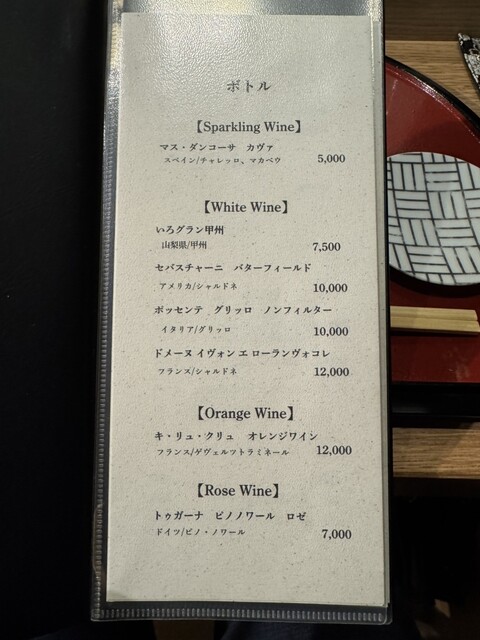 ボトル
【Sparkling Wine】
マス・ダンコーサ　カヴァ
スペイン/チャレッロ、マカベウ　5,000
【White Wine】
いろグラン甲州
山梨県/甲州　7,500
セバスチャーニ　バターフィールド
アメリカ/シャルドネ　10,000
ポッセンテ　グリッロ　ノンフィルター
イタリア/グリッロ　10,000
ドメーヌ イヴォン エ ローランヴォコレ
フランス/シャルドネ　12,000
【Orange Wine】
キ・リュ・クリュ　オレンジワイン
フランス/ゲヴェルツトラミネール　12,000
【Rose Wine】
トゥガーナ　ピノノワール　ロゼ
ドイツ/ピノ・ノワール　7,000